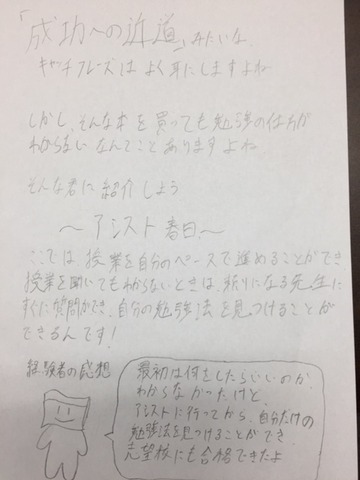 「成功への近道」みたいな、
キャッチフレーズは よく耳にしますよね
しかし、そんな本を買っても勉強の仕方が
わからないなんてことありますよね
そんな君に紹介しよう
～アシスト春日～
ここでは、授業を自分のペースで進めることができ
授業を聞いてもわからないときは、頼りになる先生に
すぐに質問ができ、自分の勉強法を見つけることが
できるんです!
経験者の感想
最初は何をしたらいいのか
わからなかったけど、
アシストに行ってから、自分だけの
勉強法を見つけることができ、
志望校にも合格できたよ